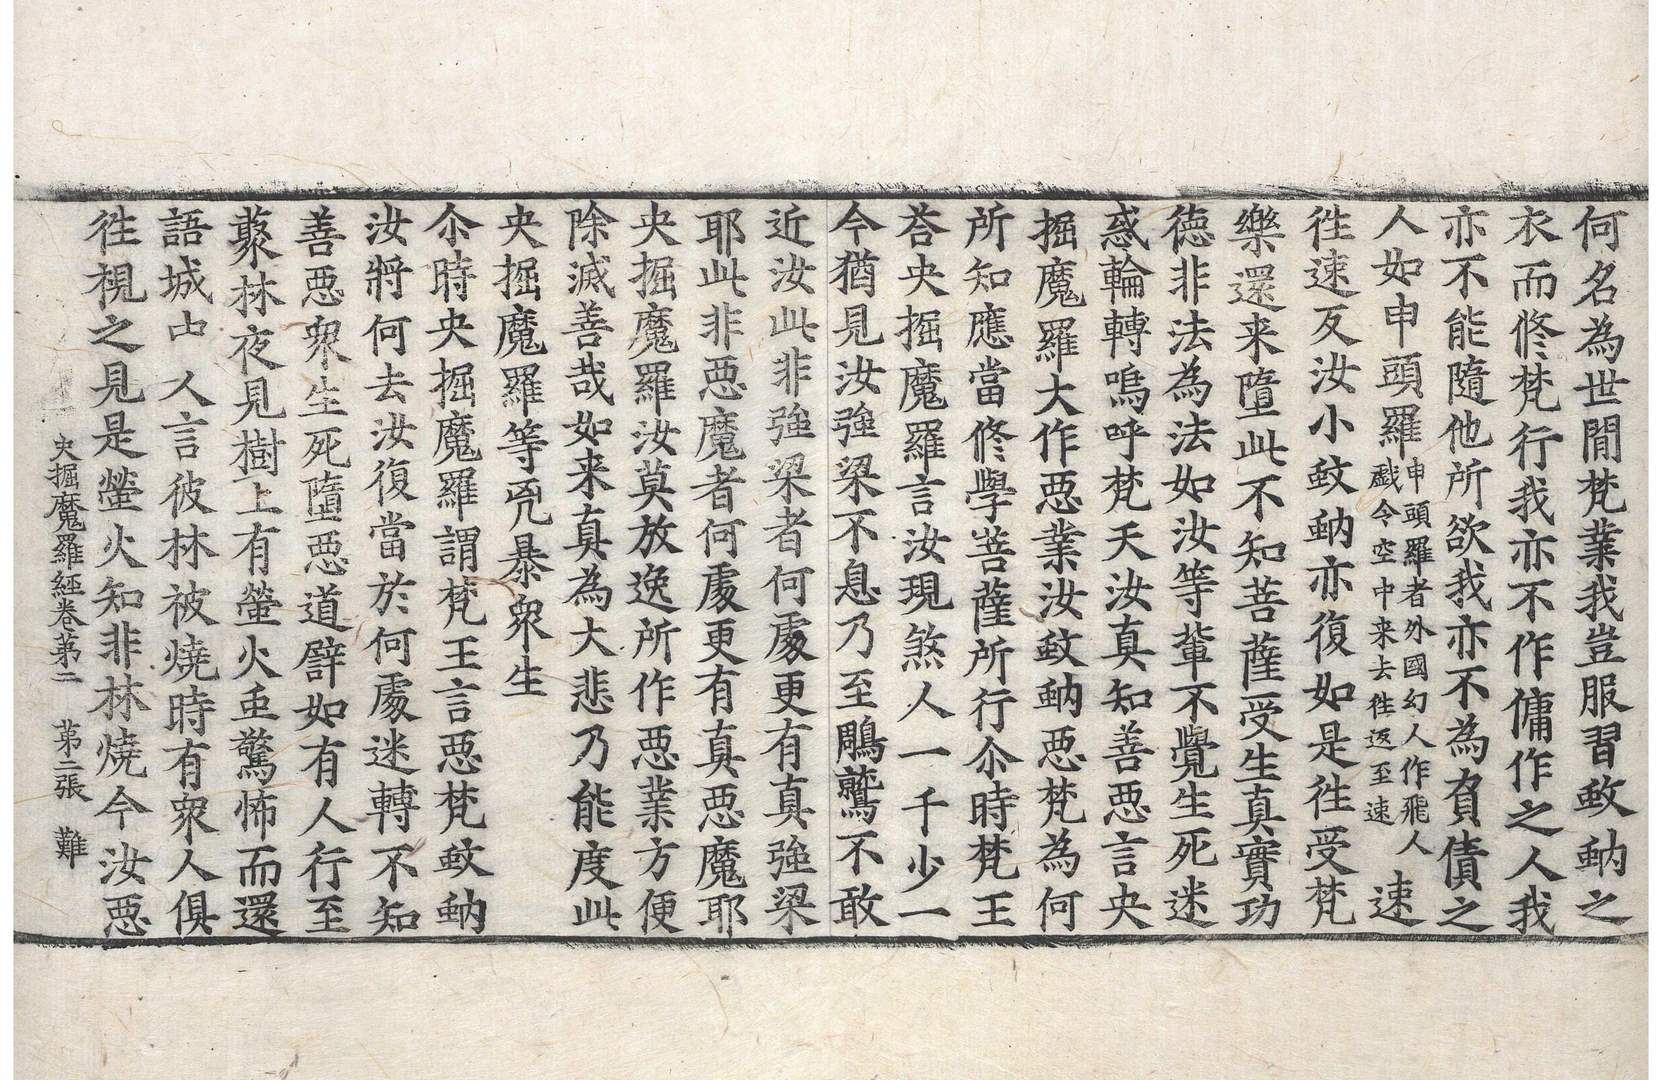 何名為世間梵業我豈服習蚊蚋之
衣而修梵行我亦不作傭作之人我
亦不能隨他所欲我亦不為負債之
人如申頭羅申頭羅者外國幻人作飛人戲令空中来去往返至速速
往速反汝小蚊蚋亦復如是往受梵
樂還来墮此不知菩薩受生真實功
德非法為法如汝等輩不覺生死迷
惑輪轉嗚呼梵天汝真知善惡言央
掘魔羅大作惡業汝蚊蚋惡梵為何
所知應當修學菩薩所行尒時梵王
荅央掘魔羅言汝現煞人一千少一
今猶見汝強梁不息乃至鵰鷲不敢
近汝此非強梁者何處更有真強梁
耶此非惡魔者何處更有真惡魔耶
央掘魔羅汝莫放逸所作惡業方便
除滅善哉如来真為大悲乃能度此
央掘魔羅等兇暴衆生
尒時央掘魔羅謂梵王言惡梵蚊蚋
汝將何去汝復當於何處迷轉不知
善惡衆生死墮惡道譬如有人行至
藂林夜見樹上有螢火䖝驚怖而還
語城中人言彼林被燒時有衆人俱
往視之見是螢火知非林燒今汝惡
央掘魔羅經卷苐二 苐二張 難